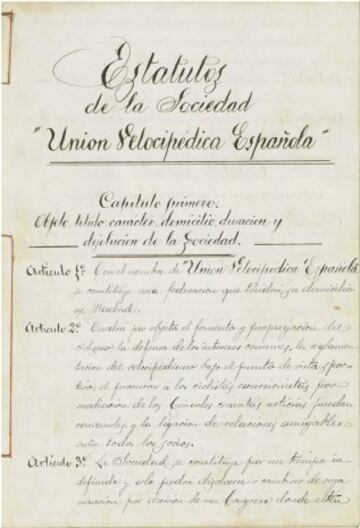 Estatutos
de la Sociedad
"Union Velocipédica Española"
Capítulo primero.
Objeto, titulo caracter, domicilio, duracion y
disolucion de la Sociedad.
Articulo 1º Con el nombre de "Union Velocipédica Española"
se constituye una federacion que tendrá su domicilio
en Madrid.
Articulo 2º Tendrá por objeto el fomento y propagacion del
ciclismo la defensa de los intereses comunes, la reglamen-
tacion del velocipedismo bajo el punto de vista spor-
tivo, el procurar á los ciclistas por
mediacion de los Cónsules cuantas noticias puedan
convenirles, y la ligacion de relaciones amigables
entre todos los socios.
Articulo 3º La Sociedad se constituye por un tiempo in-
definido y solo podrá disolverse ó cambiar de orga-
nizacion por decision de un Congreso donde esten